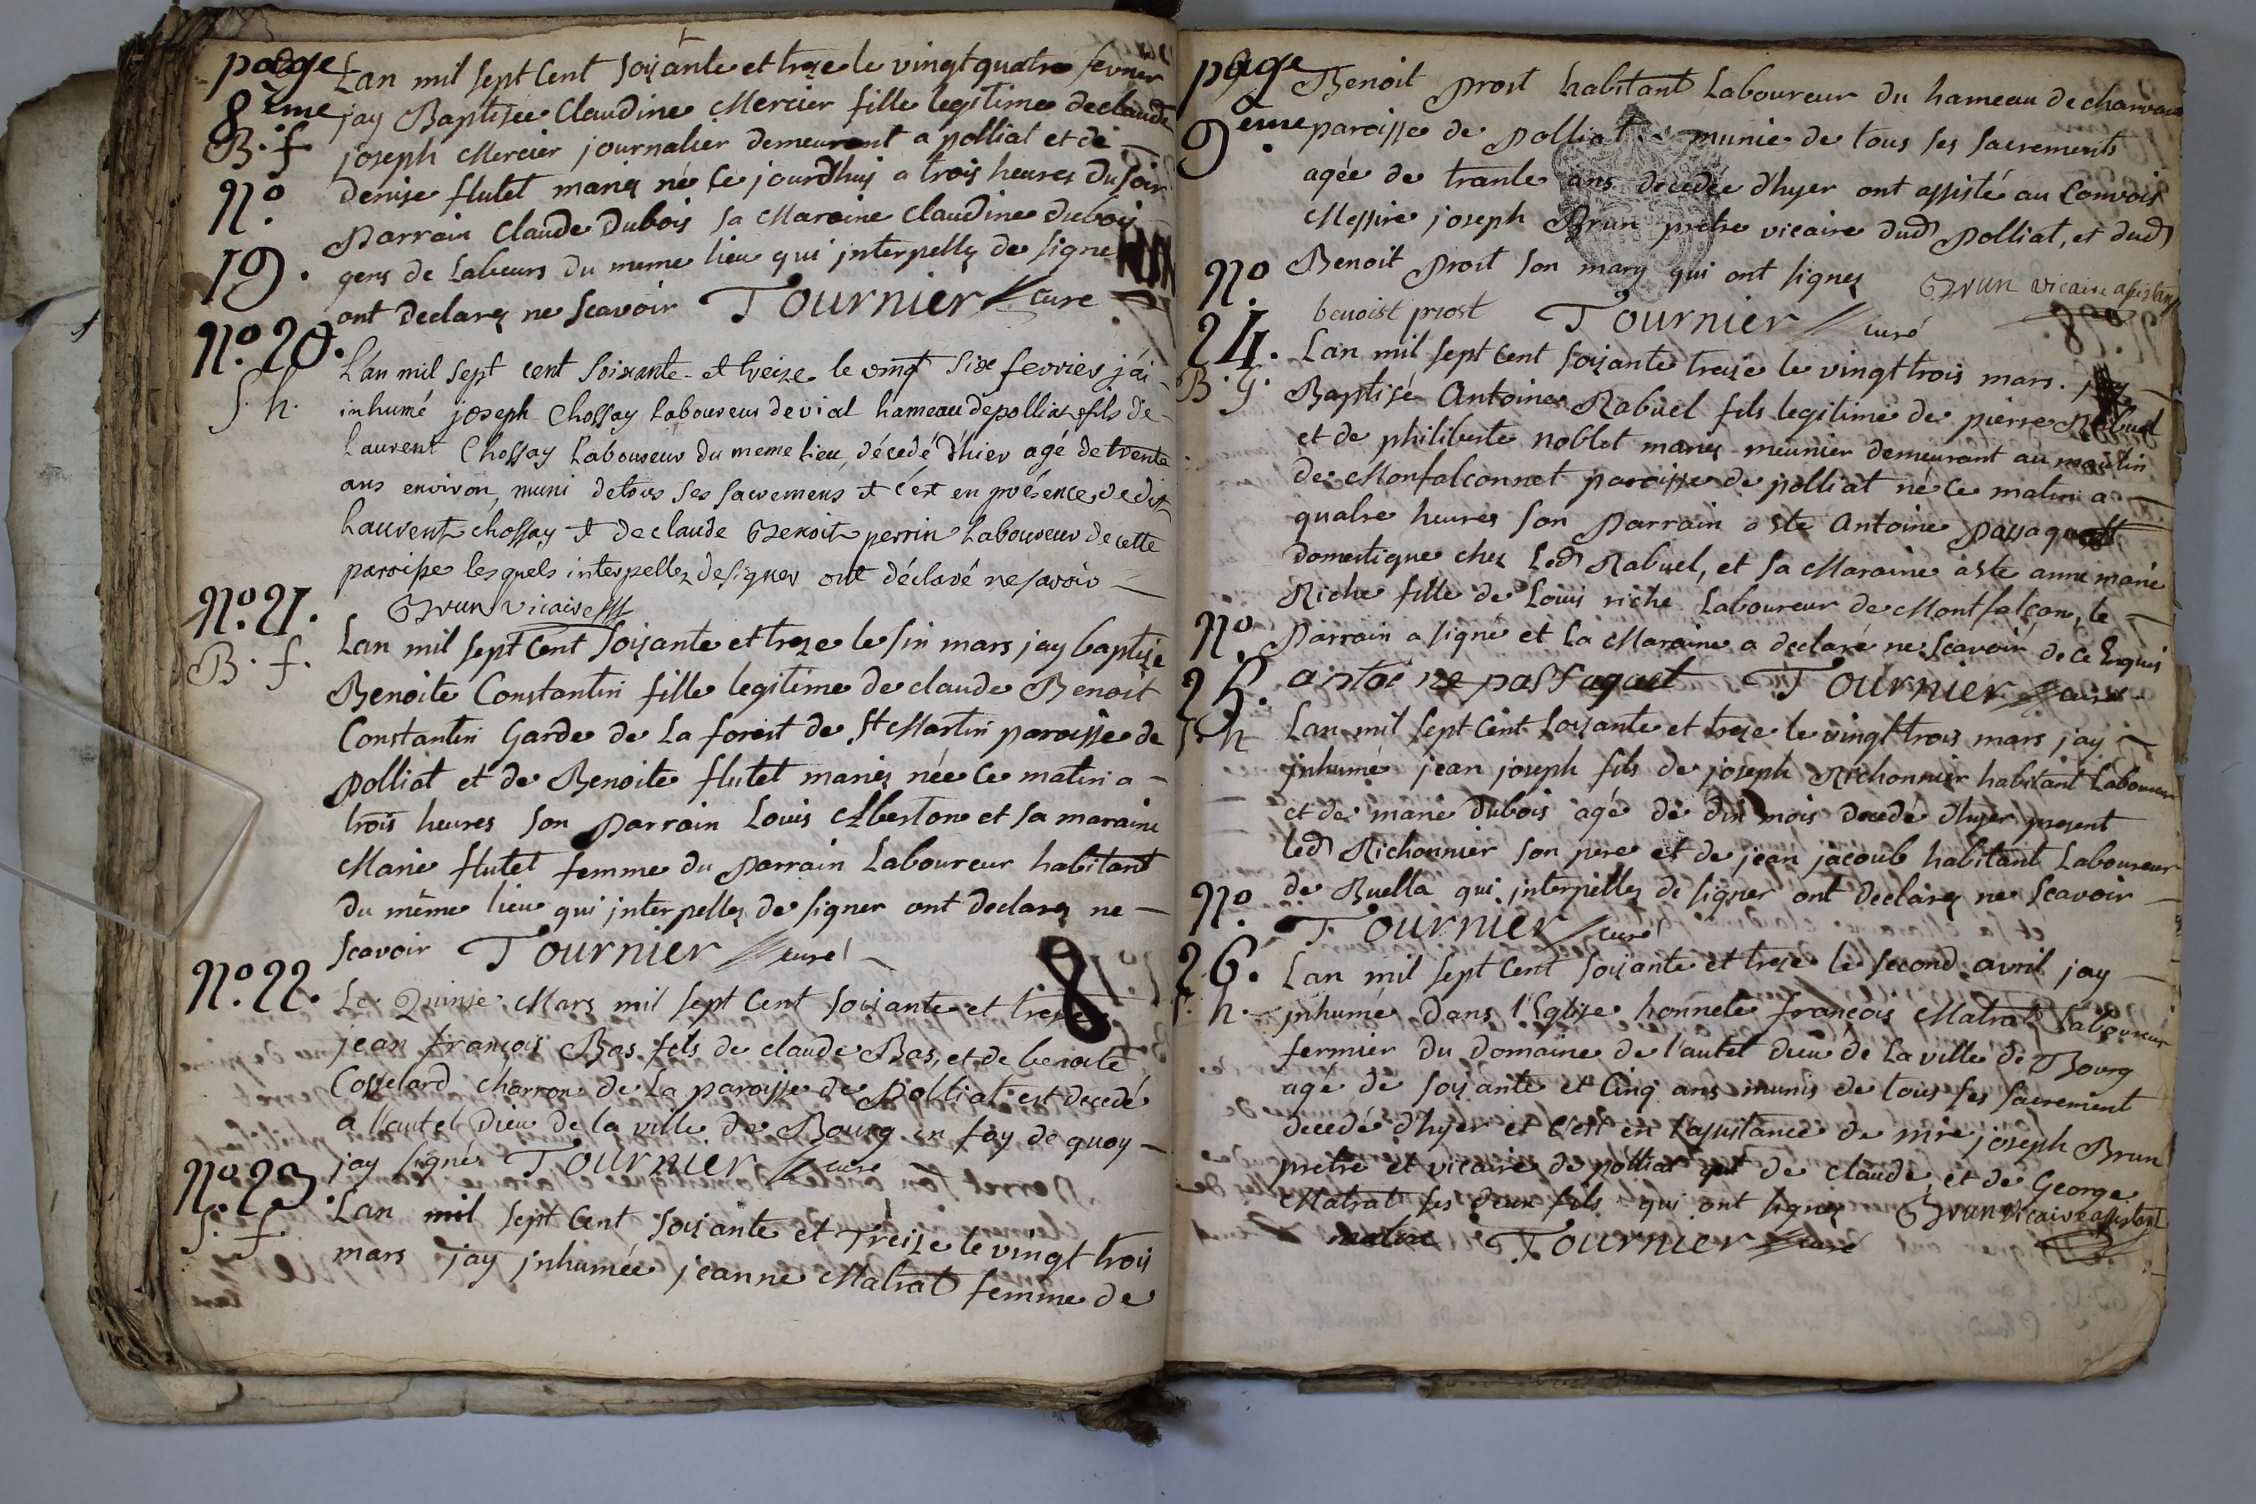 page
8ème
B. f.
N.º
19.
Lan mil sept Cent soixante et treze le vingt quatre fevrier
jay Baptisée Claudine Mercier fille legitime de claude
joseph Mercier journalier demeurant a polliat et de
denise flutet mariez né Ce jourdhuy a trois heures du soir
parrain Claude Dubois sa Maraine Claudine dubois
gens de Labeurs du meme lieu qui jnterpellez de signe
ont declarez ne scavoir Tournier curé
N.º 20.
S. h.
L'án mil sept cent soixante et treize le vingt six fevrier j'ái
inhumé joseph Chossay Laboureur de vial hameau de polliat, fils de
Laurent Chossay Laboureur du meme lieu, décedé d'hier agé de trente
ans environ, muni de tous ses sacremens et c'est en présence, de dit
Laurent chossay et de claude Benoit perrin Laboureur de cette
paroisse lesquels interpellez de signer ont déclaré ne savoir
Brun vicaire
N.º 21.
B. f.
Lan mil sept Cent soixante et treze le sin mars jay baptise
Benoite Constantin fille legitime de claude Benoit
Constantin Garde de La forest de St Martin paroisse de
polliat et de Benoite flutet mariez née Ce matin a
trois heures son parrain Louis Alberton et sa maraine
Marie flutet femme du parrain Laboureur habitant
du même lieu qui jnterpellez de signer ont declarez ne
scavoir Tournier curé
8
N.º 22.
Le Quinse Mars mil sept Cent soixante et treze
jean françois Bas fils de claude Bas, et de benoite
Cosselard charron de La paroisse de polliat est decedé
a l'autel Dieu de la ville de Bourg en foy de quoy
jay signé Tournier curé
N.º 23.
S. f.
Lan mil sept Cent soixante et Treize le vingt trois
mars jay jnhumée jeanne Matrat femme de
page
9ème
Benoit prost habitant Laboureur du hameau de chanvau
paroisse de polliat munie de tous ses sacrements
agée de trante ans decedée d'hyer ont assisté au Convois
Messire joseph Brun pretre vicaire dud polliat, et dud
Benoit prost son mary qui ont signez Brun vicaire assistant
benoist prost Tournier curé
N.º
24.
B. G.
Lan mil sept Cent soixante treize le vingt trois mars. jay
Baptisé Antoine Rabuel fils legitime de pierre Rabuel
et de philiberte noblet mariez meunier demeurant au moulin
de Monfalconnet paroisse de polliat né ce matin a
quatre heures son parrain a ete Antoine passaquet
domestique chez Led Rabuel, et sa Maraine a ete anne marie
Riche fille de Louis riche Laboureur de Montfalcon, le
parrain a signé et La Maraine a declaré ne scavoir de ce Enquis
antoi ne passaquet Tournier curé
N.º
25.
S. h
Lan mil sept Cent soixante et treze le vingt trois mars jay
jnhumé jean joseph fils de joseph Richonnier habitant Laboureur
et de marie Dubois agé de dix mois decedé d'hyer present
led Richonnier son pere et de jean jacoub habitant Laboureur
de Ruella qui jnterpellez de signer ont declarez ne scavoir
Tournier curé
N.º
26.
S. h.
Lan mil sept Cent soixante et treze le second avril jay
jnhumé Dans l'Eglise honnete françois Matrat Laboureur
fermier du domaine de l'autel dieu de La ville de Bourg
agé de soixante et Cinq ans munis de tous ses sacrement
decedé d'hyer et C'est en l'assistance de mre joseph Brun
pretre et vicaire de polliat et de claude, et de George
Matrat ses deux fils qui ont signez Brun vicaire assistant
Tournier curé